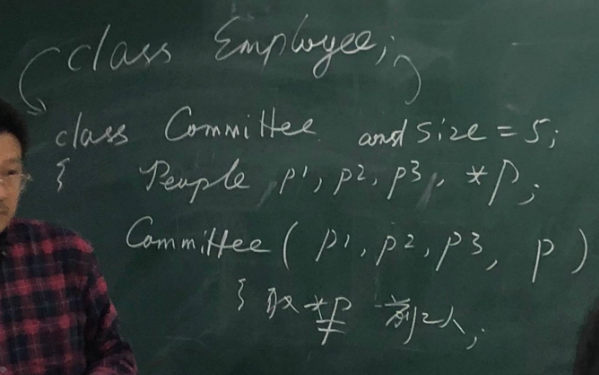 class Employee;
class Committee and size = 5;
{ People p1, p2, p3, *p;
Committee ( p1, p2, p3, p )
{ 取 *p